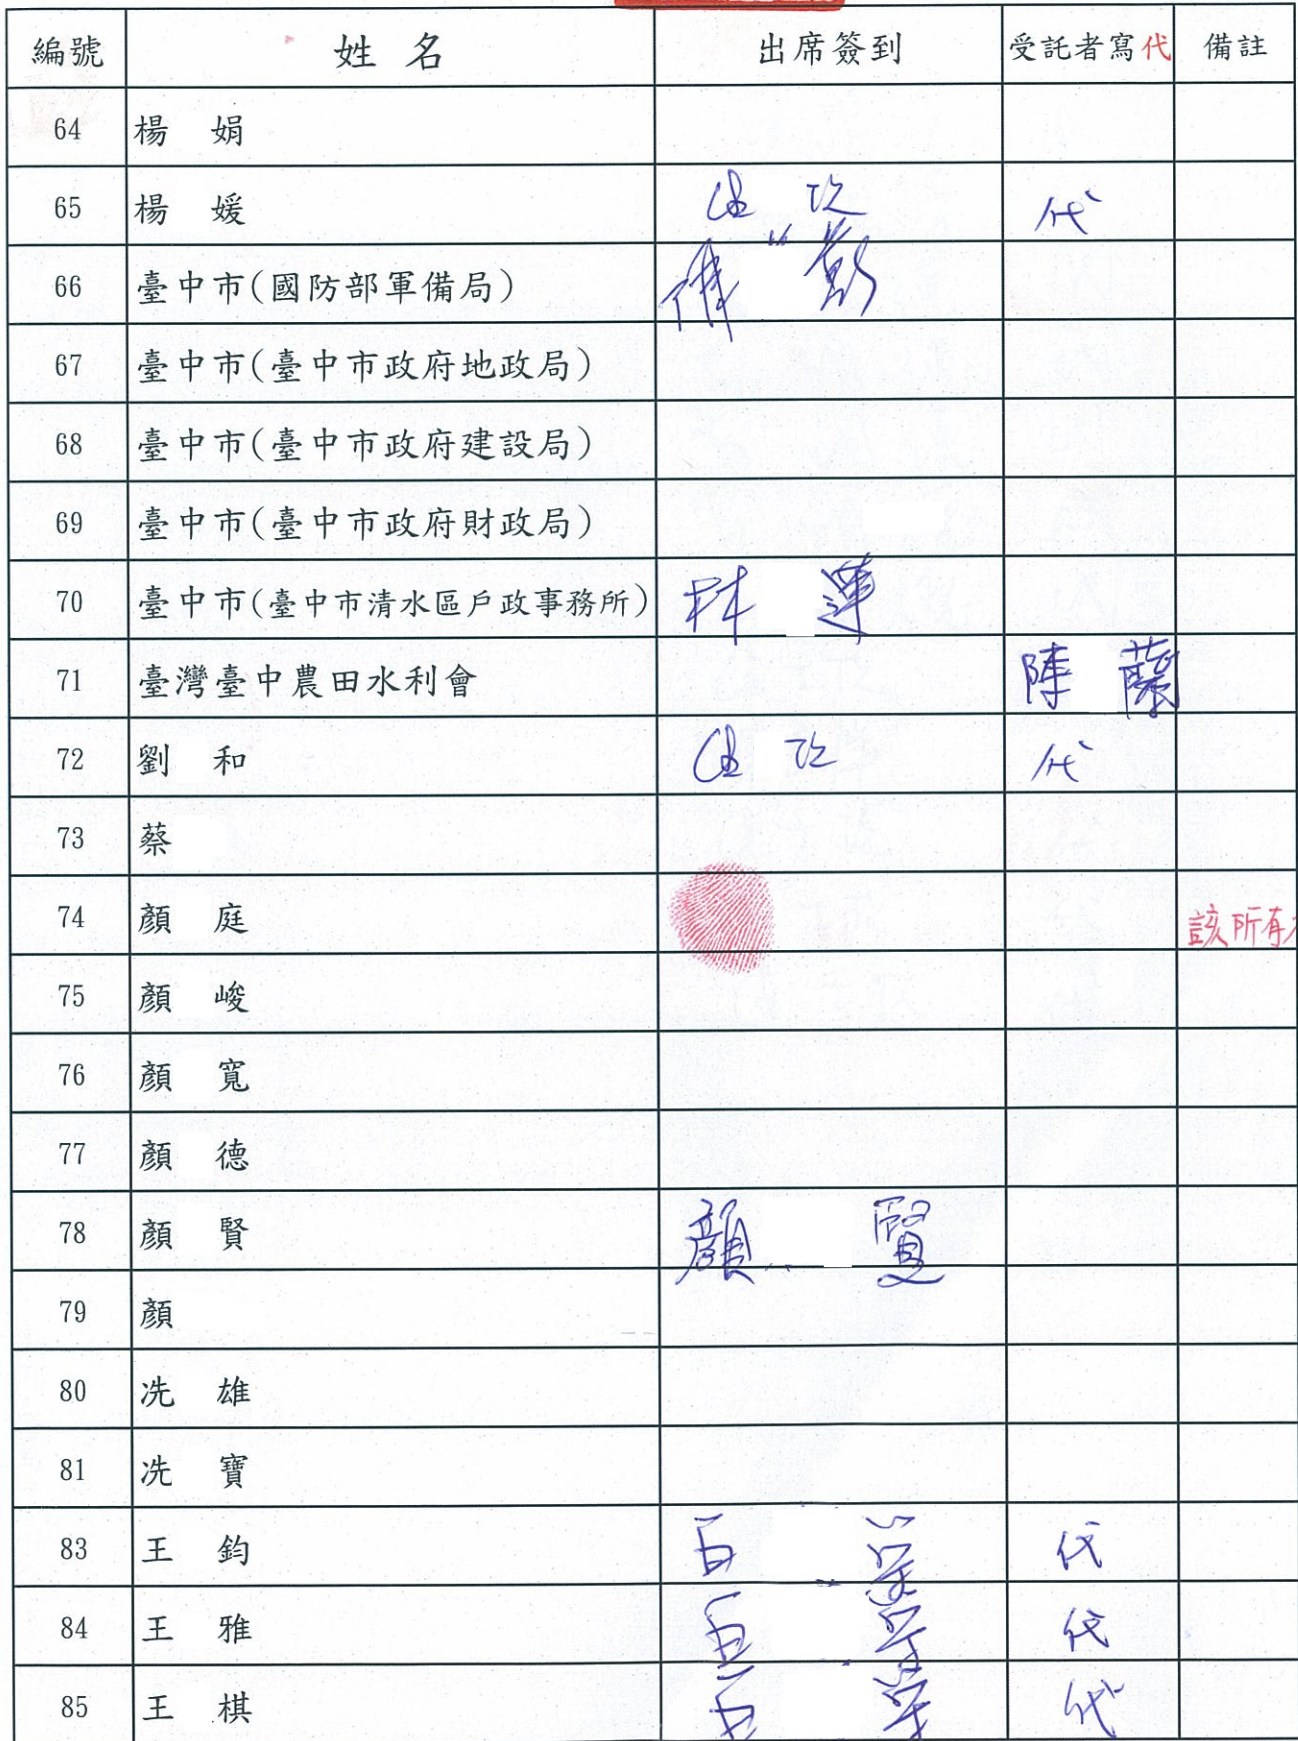 編號 姓 名 出席簽到 受託者寫代 備註
64 楊 娟
65 楊 媛 代
66 臺中市(國防部軍備局)
67 臺中市(臺中市政府地政局)
68 臺中市(臺中市政府建設局)
69 臺中市(臺中市政府財政局)
70 臺中市(臺中市清水區戶政事務所) 林 蓮
71 臺灣臺中農田水利會 陳
72 劉 和 代
73 蔡
74 顏 庭 該所有
75 顏 峻
76 顏 寬
77 顏 德
78 顏 賢 顏 賢
79 顏
80 冼 雄
81 冼 寶
83 王 鈞 代
84 王 雅 代
85 王 棋 代